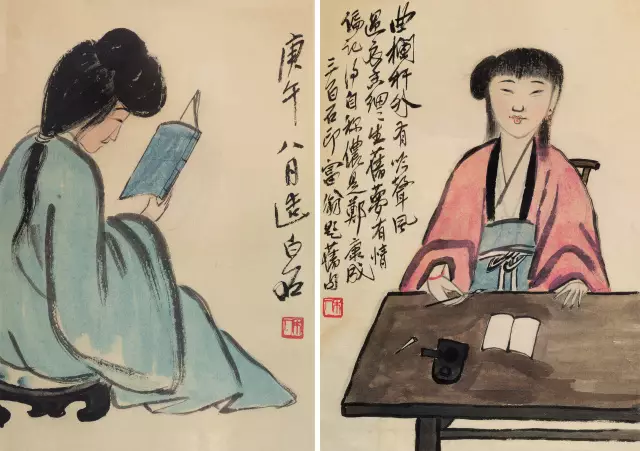 庚午八月造白石
曲欄杆外有吟聲風
過衣香細々生舊夢有情
偏記得自稱儂是鄭康成
三百石印富翁題舊句